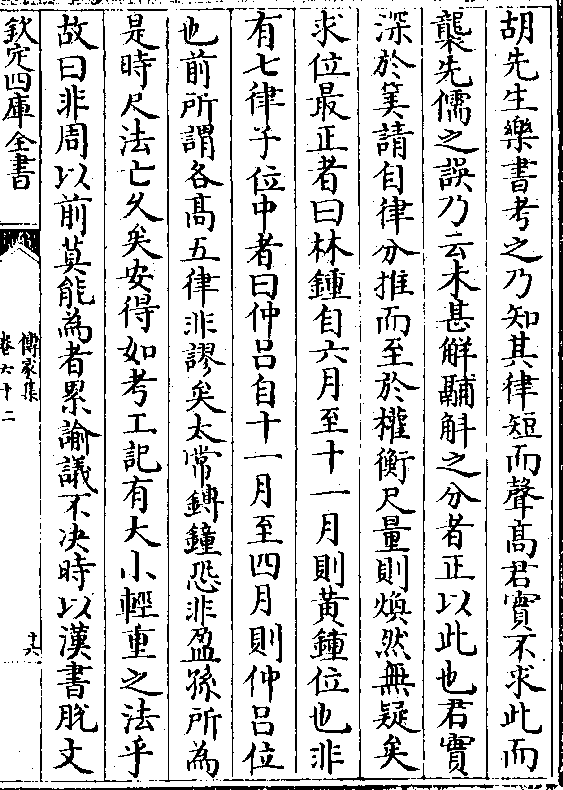 胡先生樂書考之乃知其律短而聲髙君實不求此而
襲先儒之誤乃云未甚解鬴斛之分者正以此也君實
深於筭請自律分推而至於權衡尺量則煥然無疑矣
求位最正者曰林鍾自六月至十一月則黄鍾位也非
有七律子位中者曰仲吕自十一月至四月則仲吕位
也前所謂各髙五律非謬矣太常鏄鐘恐非盈孫所為
是時尺法亡久矣安得如考工記有大小輕重之法乎
故曰非周以前莫能為者累諭議不决時以漢書脱文
欽定四庫全書
傳家集
卷六十二
十六